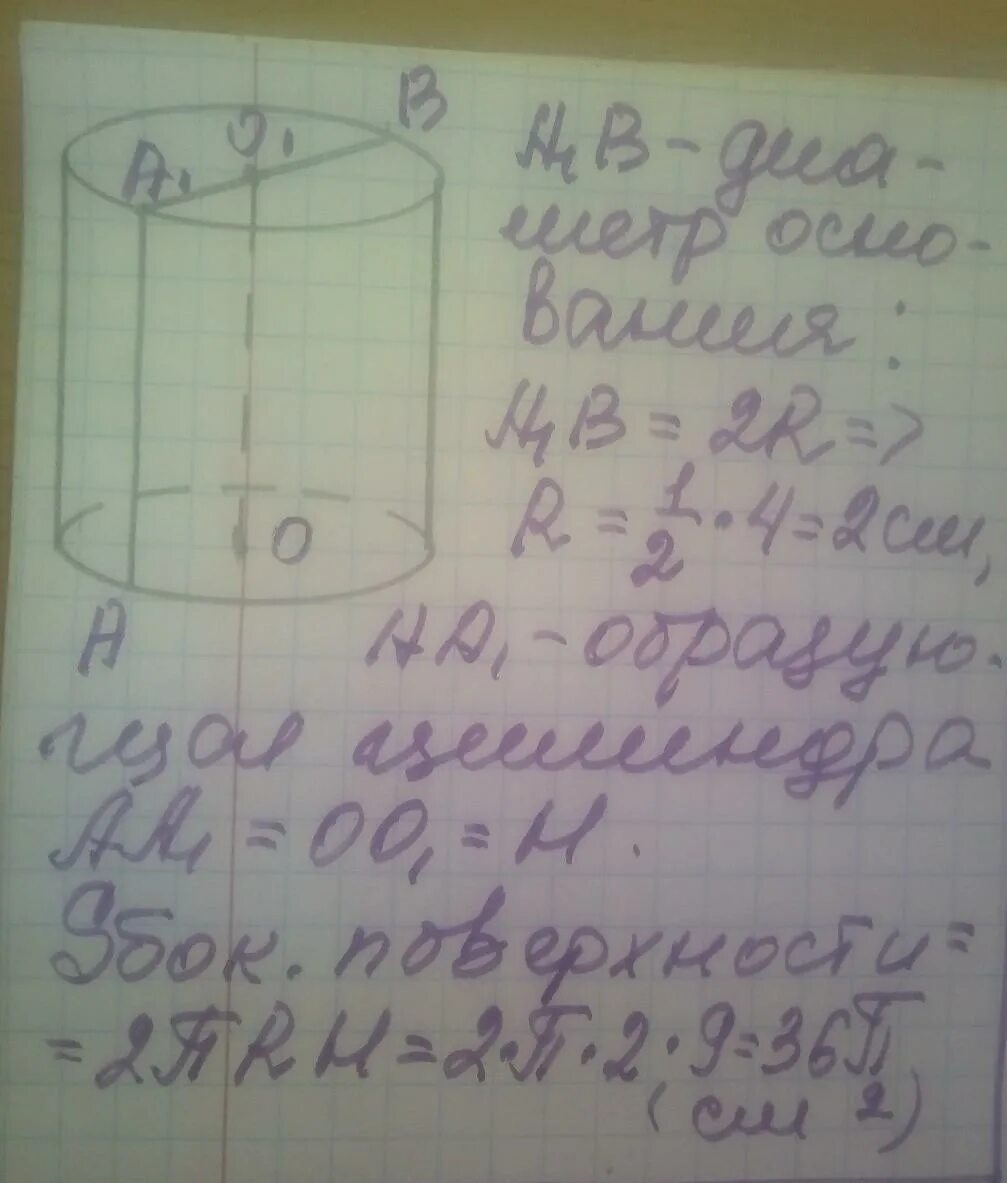 B
O₁
A₁
O
A
A₁B - диа-
метр осно-
вания:
A₁B = 2R =>
R = 1/2 · 4 = 2 см,
AA₁ - образую-
щая цилиндра
AA₁ = OO₁ = H.
Sбок. поверхности =
= 2πRH = 2·π·2·9=36π
(см 2)